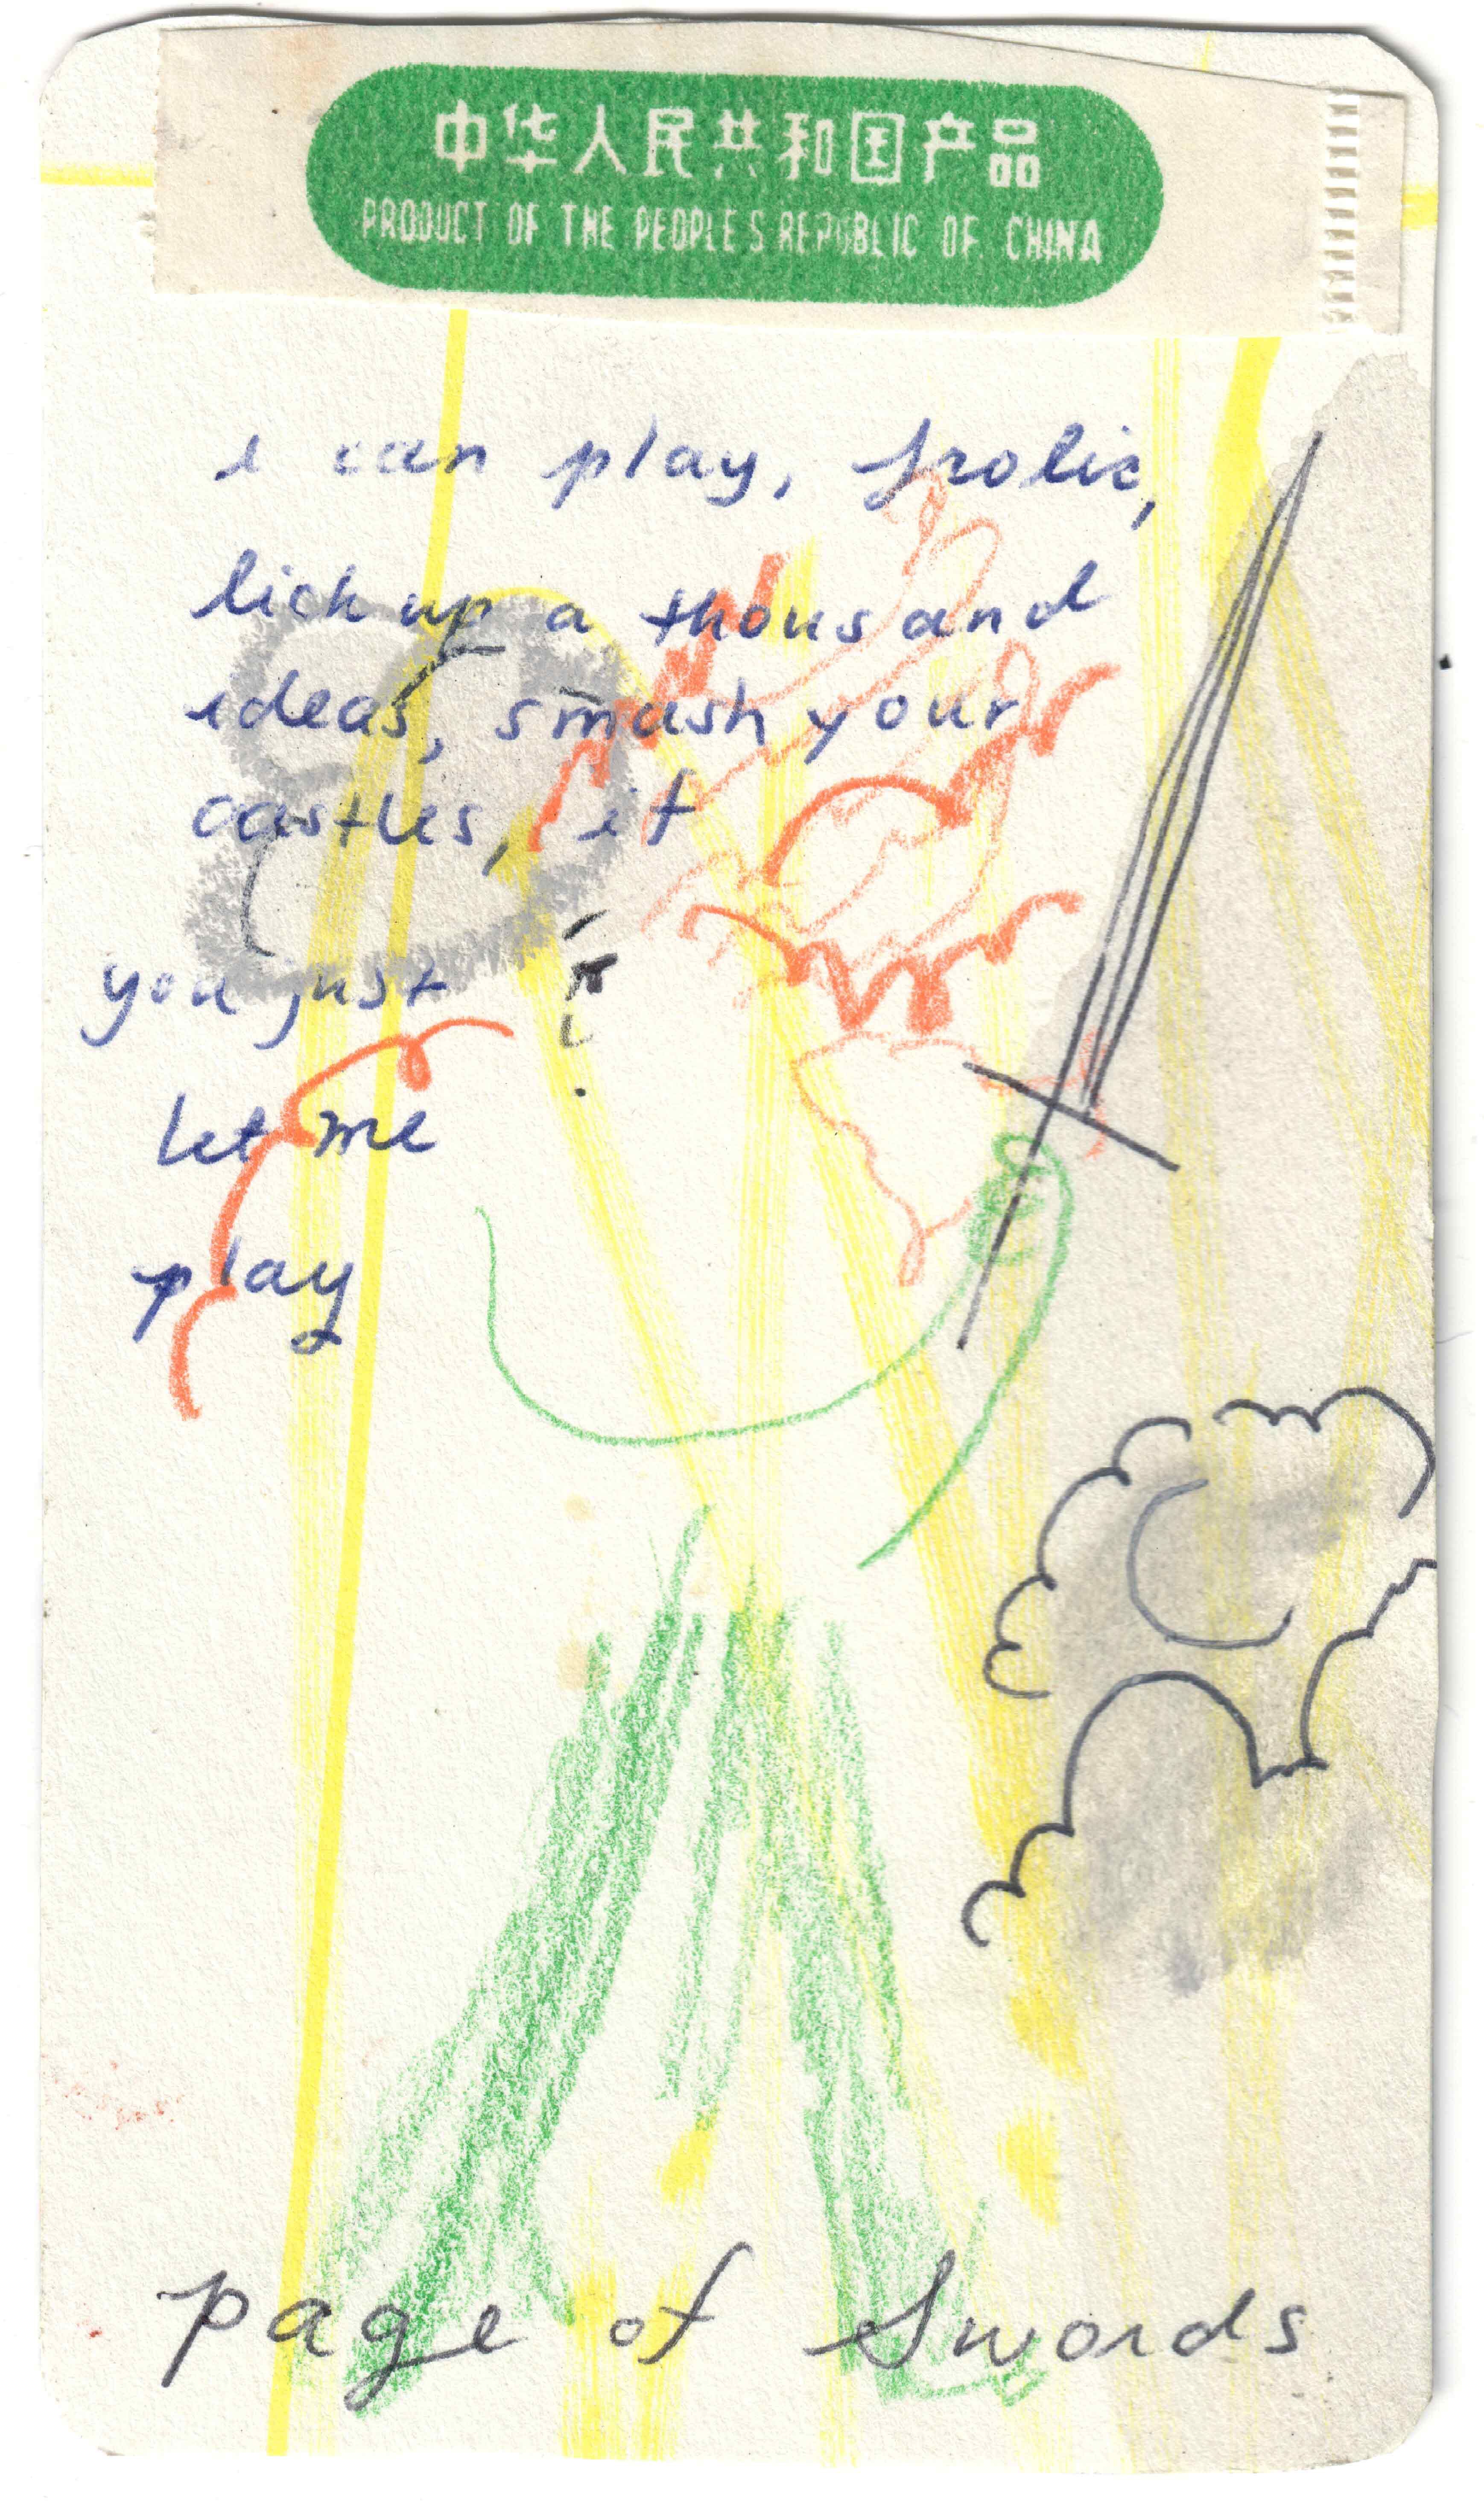 中华人民共和国产品
PRODUCT OF THE PEOPLE'S REPUBLIC OF CHINA
i can play, frolic,
lick up a thousand
ideas, smash your
castles, if
you just
let me
play
page of Swords